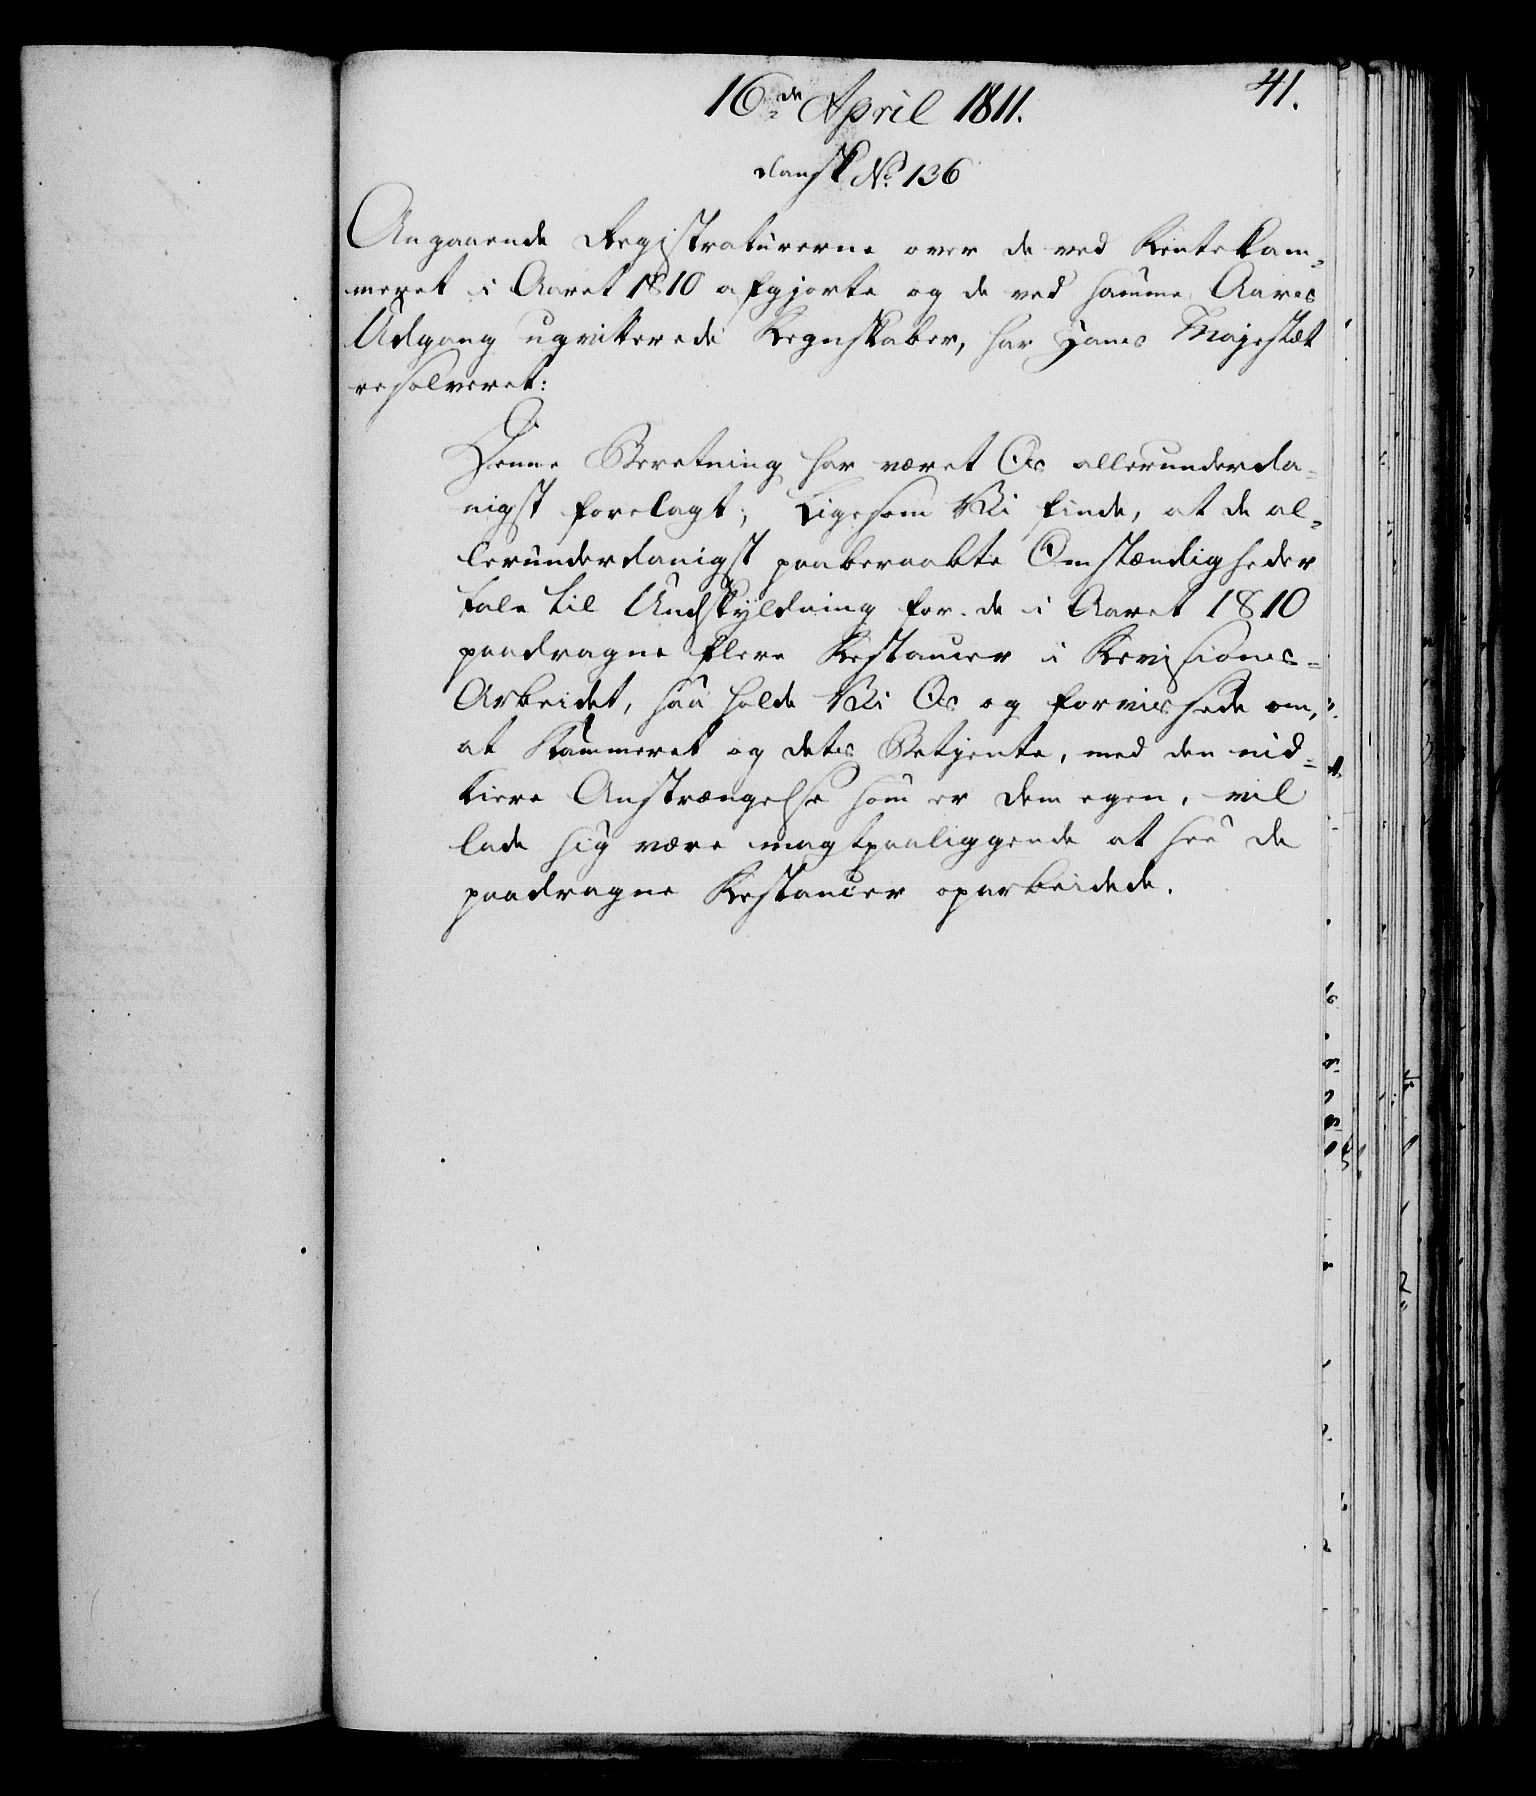 41.
16de April 1811.
dansk No 136
Angaaende Registraturerne over de ved Rentekam-
meret i Aaret 1810 afgjorte og de ved samme Aares
Udgang uqvitterede Regnskaber, har Hans Majestæt
resolveret:
Denne Beretning har været Os allerunderda-
nigst forelagt; Ligesom Vi finde, at de al-
lerunderdanigst paaberaabte Omstændigheder
tale til Undskyldning for de i Aaret 1810
paadragne flere Restancer i Revisions-
Arbeidet, saa holde Vi Os og forvissede om,
at Kammeret og dets Betjente, med den nid-
kiere Anstrængelse som er dem egen, vil
lade sig være magtpaaliggende at see de
paadragne Restancer oparbeidede.